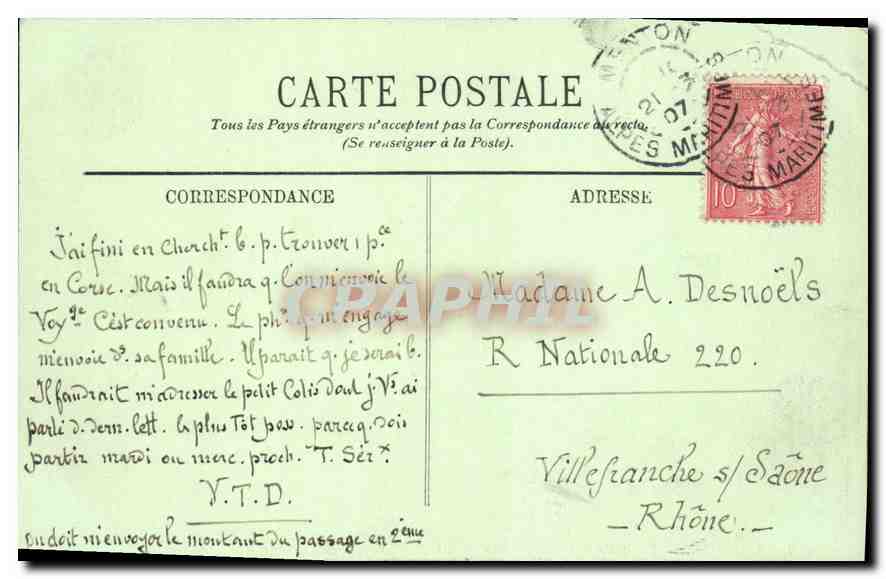 CARTE POSTALE
Tous les Pays étrangers n'acceptent pas la Correspondance au recto.
(Se renseigner à la Poste).
MENTON
ALPES MARITIMES
21
07
MENTON
ALPES MARITIMES
07
10
CORRESPONDANCE
ADRESSE
J'ai fini en Chercht b. p. trouver 1 pce
en Corse. Mais il faudra q. l'on m'envoie le
Voyge C'est convenu. Le phn q. m'engage
m'envoie ds sa famille. Il parait q. je serai b.
Il faudrait m'adresser le petit Colis dont j. Vs ai
parlé d. dern. lett. le plus Tôt poss. parceq. dois
partir mardi ou merc. proch. T. Sérx.
V.T.D.
on doit m'envoyer le montant du passage en 2ème
Madame A. Desnoëls
R Nationale 220.
Villefranche s/ Saône
- Rhône. -
CPAPHIL